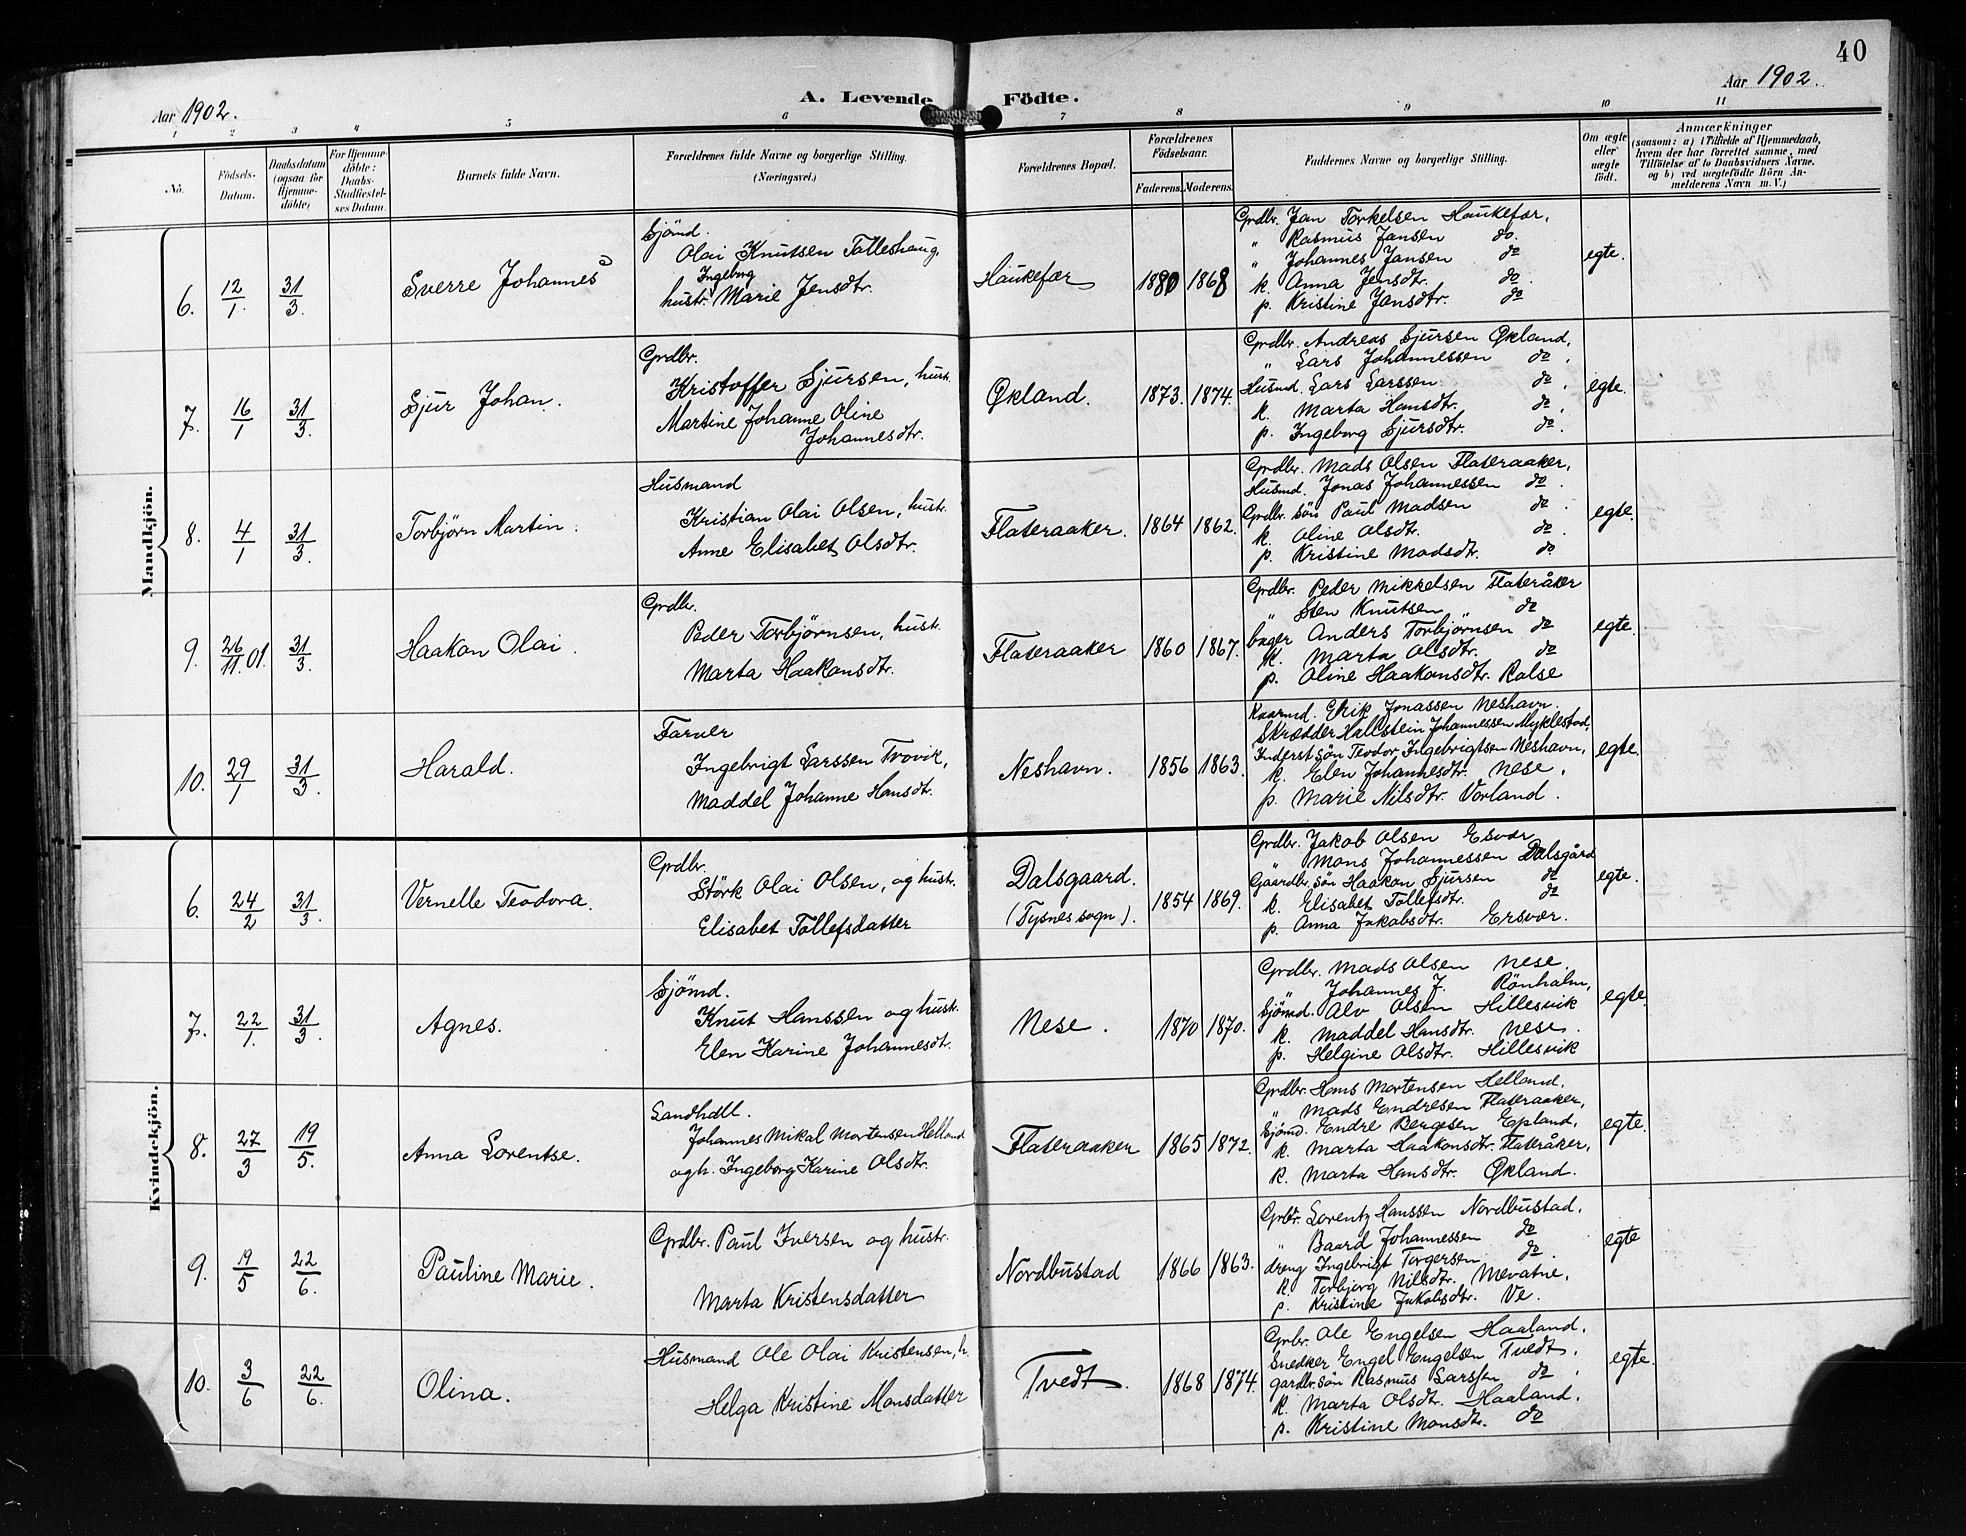 40
Aar 1902.
Aar 1902.
A. Levende Födte.
1 2 3 4 5 6 7 8 9 10 11
No.
Födsels-Datum.
Daabsdatum (ogsaa for Hjemme-döbte)
For Hjemme-döbte: Daabs-Stadfæstel-ses Datum.
Barnets fulde Navn.
Forældrenes fulde Navne og borgerlige Stilling.
(Næringsvei.)
Forældrenes Bopæl.
Forældrenes Födselsaar.
Faderens. Moderens.
Faddernes Navne og borgerlige Stilling.
Om ægte eller uægte födt.
Anmærkninger
(saasom: a) i Tilfælde af Hjemmedaab,
hvem der har forrettet samme, med
Tilföielse af to Daabsvidners Navne.
og b) ved uægtefödte Börn An-
melderens Navn m. V.)
Mandkjön.
6. 12/1 31/3 Sverre Johannes
Sjömd.
Olai Knutsen Tolleshaug,
Ingeborg
hustr. Marie Jensdtr.
Haukefær 1880 1868
Grdbr. Jan Torkelsen Haukefær,
" Rasmus Jansen do.
" Johannes Jansen do
k. Anna Jensdtr. do.
p. Kristine Jansdtr. do
egte.
7. 16/1 31/3. Sjur Johan.
Grdbr.
Kristoffer Sjursen, hust.
Martine Johanne Oline
Johannesdtr.
Økland. 1873. 1874.
Grdbr. Andreas Sjursen Økland,
" Lars Johannessen do,
Husmd. Lars Larssen do,
k. Marta Hansdtr. do,
p. Ingeborg Sjursdtr. do.
egte.
8. 4/1 31/3 Torbjörn Martin.
Husmand
Kristian Olai Olsen, hustr.
Anne Elisabet Olsdtr.
Flateraaker. 1864 1862.
Grdbr. Mads Olsen Flateraaker,
Husmd. Jonas Johannessen do.
Grdbr. sön Paul Madsen do.
k. Oline Olsdtr. do.
p. Kristine Madsdtr. do
egte.
9. 26/11.01. 31/3 Haakon Olai.
Grdbr.
Peder Torbjørnsen, hust.
Marta Haakonsdtr.
Flateraaker 1860 1867.
Grdbr. Peder Mikkelsen Flateråker
" Sten Knutsen " do
bager Anders Torbjørnsen do
k. Marta Olsdtr. do
p. Oline Haakonsdtr. Kalse
egte.
10. 29/1 31/3. Harald.
Farver
Ingebrigt Larssen Trovik,
Maddel Johanne Hansdtr.
Neshavn. 1856 1863.
Kaarmd. Erik Jonassen Neshavn.
Skrædder Hallstein Johannessen Myklestad,
Inderst sön Teodor Ingebrigtsen Neshavn,
k. Elen Johannesdtr. Nese,
p. Marie Nilsdtr. Vorland.
egte.
Kvindekjön.
6. 24/2 31/3. Vernelle Teodora.
Grdbr.
Störk Olai Olsen, og hustr.
Elisabet Tollefsdatter
Dalsgaard.
(Tysnes sogn).
1854 1869.
Grdbr. Jakob Olsen Esvær
" Mons Johannessen Dalsgård
Gaardbr. sön Haakon Sjursen do
k. Elisabet Tollefsdtr. do
p. Anna Jakobsdtr. Ersvær.
egte.
7. 22/1. 31/3. Agnes.
Sjömd.
Knut Hanssen og hust.
Elen Karine Johannesdtr.
Nese. 1870 1870.
Grdbr. Mads Olsen Nese
" Johannes J. Rönholm,
Sjömd. Alv Olsen Hillesvik
k. Maddel Hansdtr. Nese.
p. Helgine Olsdtr. Hillesvik
egte.
8. 27/3 19/5. Anna Lorentse.
Landhdl.
Johannes Mikal Mortensen Helland
og h. Ingeborg Karine Olsdtr.
Flateraaker 1865 1872.
Grdbr. Hans Mortensen Helland,
" Mads Endresen Flateraaker,
Sjömd. Endre Bergesen Epland,
k. Marta Haakonsdtr. Flateråker,
k. Marta Hansdtr. Økland.
egte.
9. 19/5 22/6. Pauline Marie.
Grdbr. Paul Iversen og hustr.
Marta Kristensdatter
Nordbustad 1866 1863.
Grbr. Lorentz Hanssen Nordbustad,
" Baard Johannessen do
dreng Ingebrigt Torgersen do.
k. Torbjorg Nilsdtr. Mevatne,
p. Kristine Jakobsdtr. Ve.
egte
10. 3/6 22/6. Olina.
Husmand Ole Olai Kristensen, h.
Helga Kristine Monsdatter
Tvedt. 1868 1874.
Grbr. Ole Engelsen Haaland,
Snedker Engel Engelsen Tvedt,
gardbr. sön Rasmus Larssen do,
k. Marta Olsdtr. Haaland,
p. Kristine Monsdtr. do
egte.